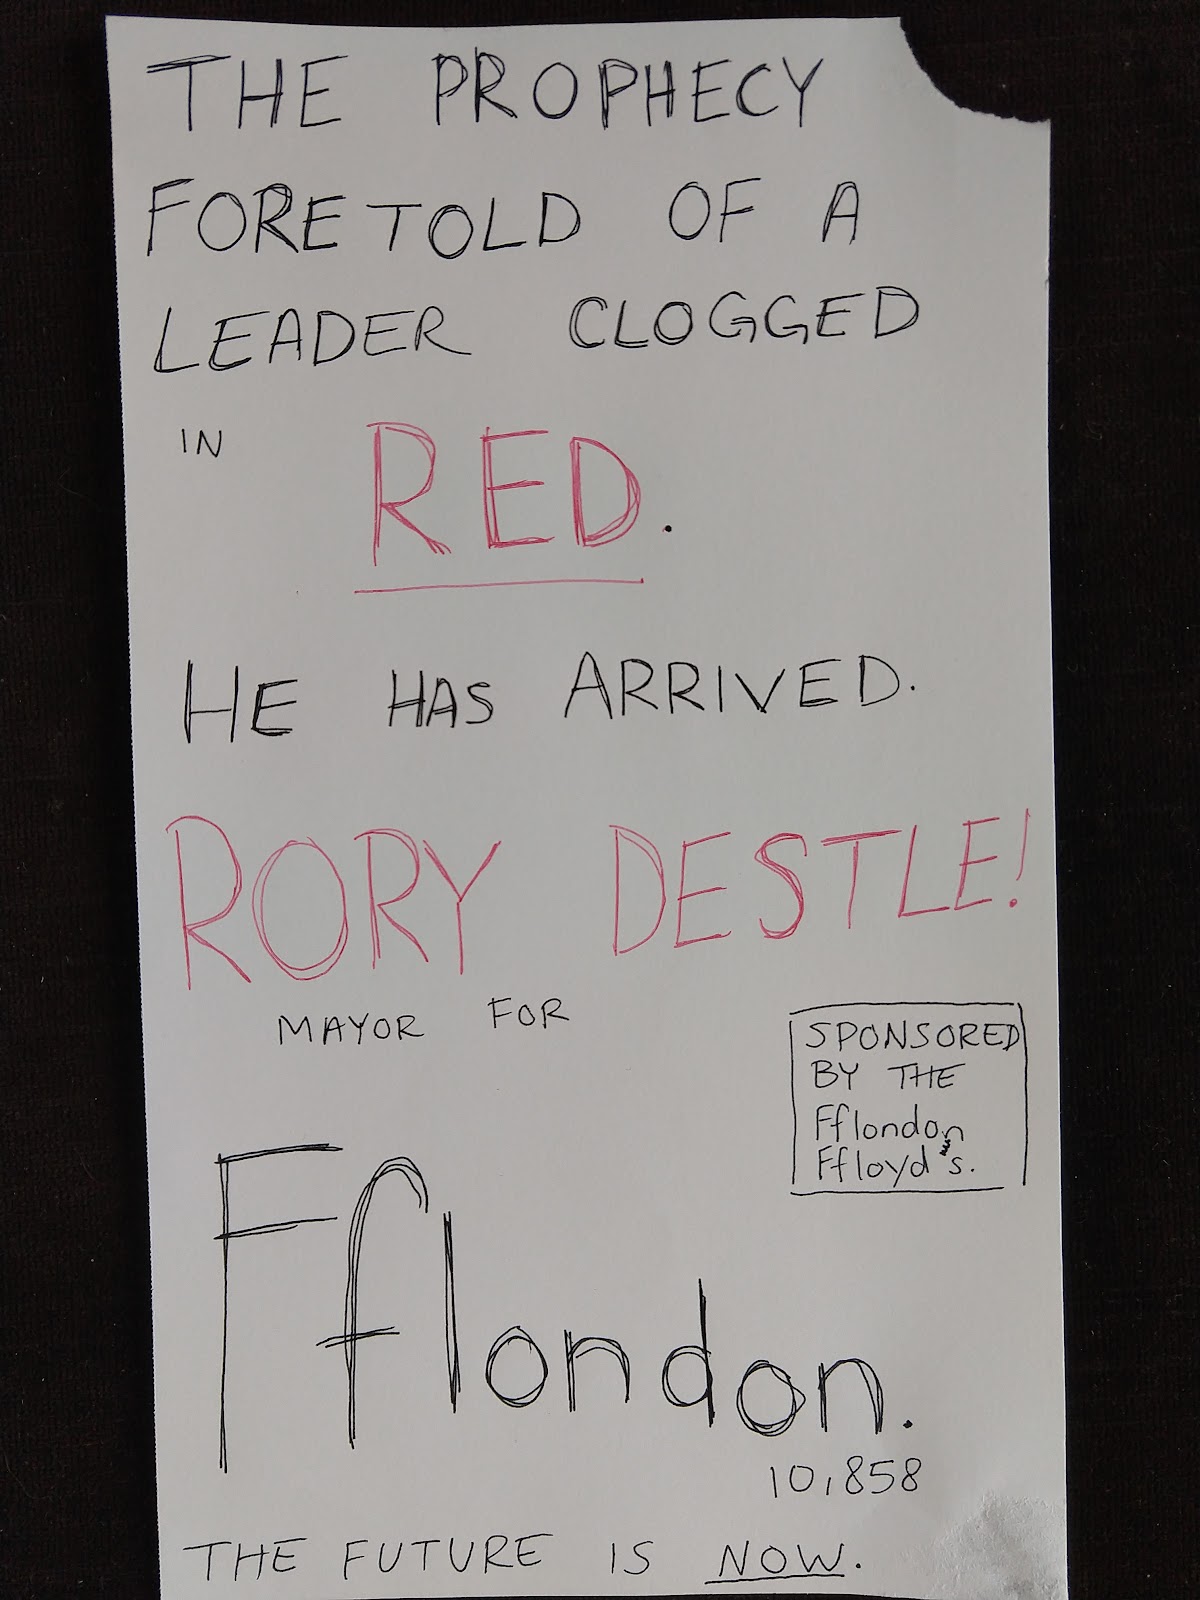 THE PROPHECY
FORETOLD OF A
LEADER CLOGGED
IN RED.
HE HAS ARRIVED.
RORY DESTLE!
MAYOR FOR
SPONSORED
BY THE
Fflondon
Ffloyd's.
Fflondon.
10,858
THE FUTURE IS NOW.